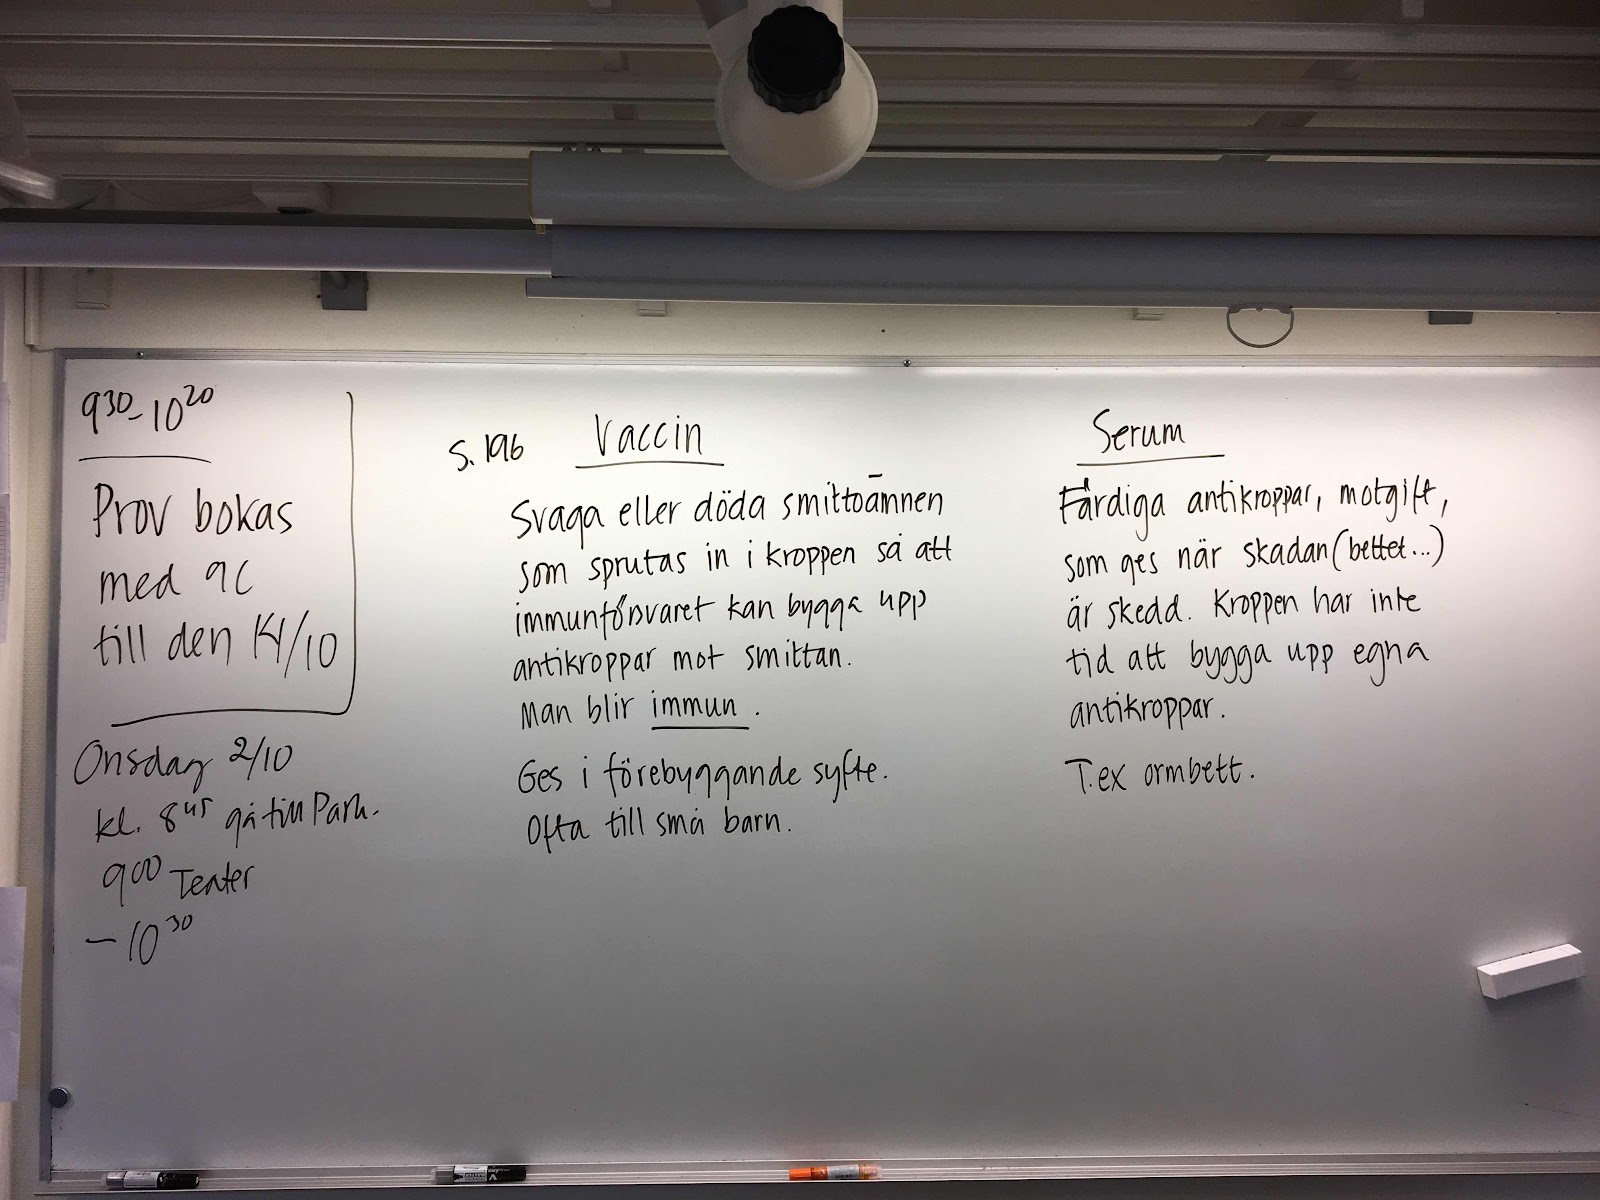 9³⁰-10²⁰
Prov bokas
med 9C
till den 14/10
Onsdag 2/10
kl. 8⁴⁵ gå till Park.
9⁰⁰ Teater
– 10³⁰
s. 196
Vaccin
Svaga eller döda smittoämnen
som sprutas in i kroppen så att
immunförsvaret kan bygga upp
antikroppar mot smittan.
Man blir immun.
Ges i förebyggande syfte.
Ofta till små barn.
Serum
Färdiga antikroppar, motgift,
som ges när skadan (bettet...)
är skedd. Kroppen har inte
tid att bygga upp egna
antikroppar.
T.ex ormbett.